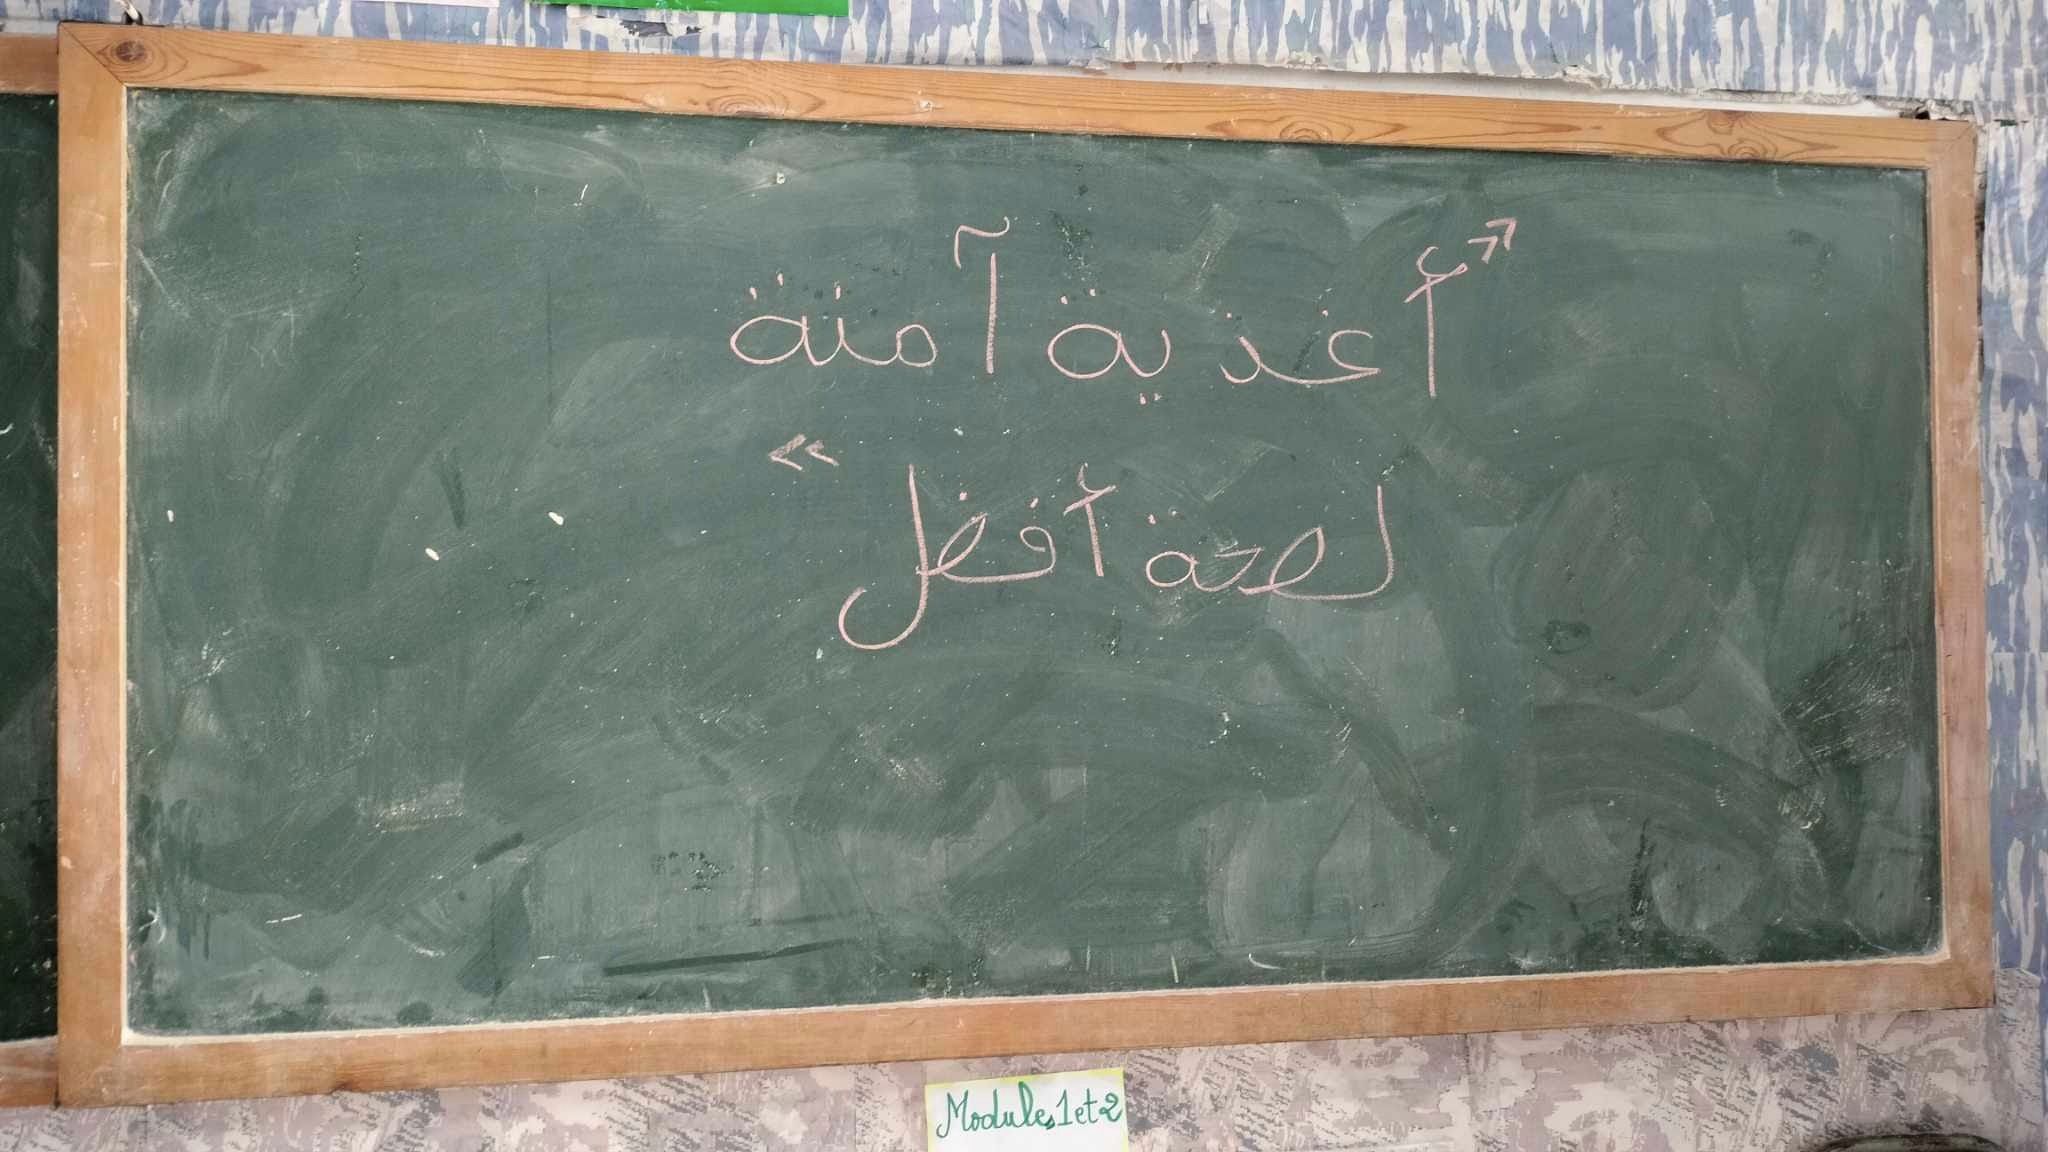 «أغذية آمنة
لصحة أفضل»
Module 1 et 2